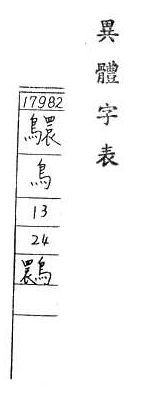 異體字表
17982
鳥
13
24
䴉